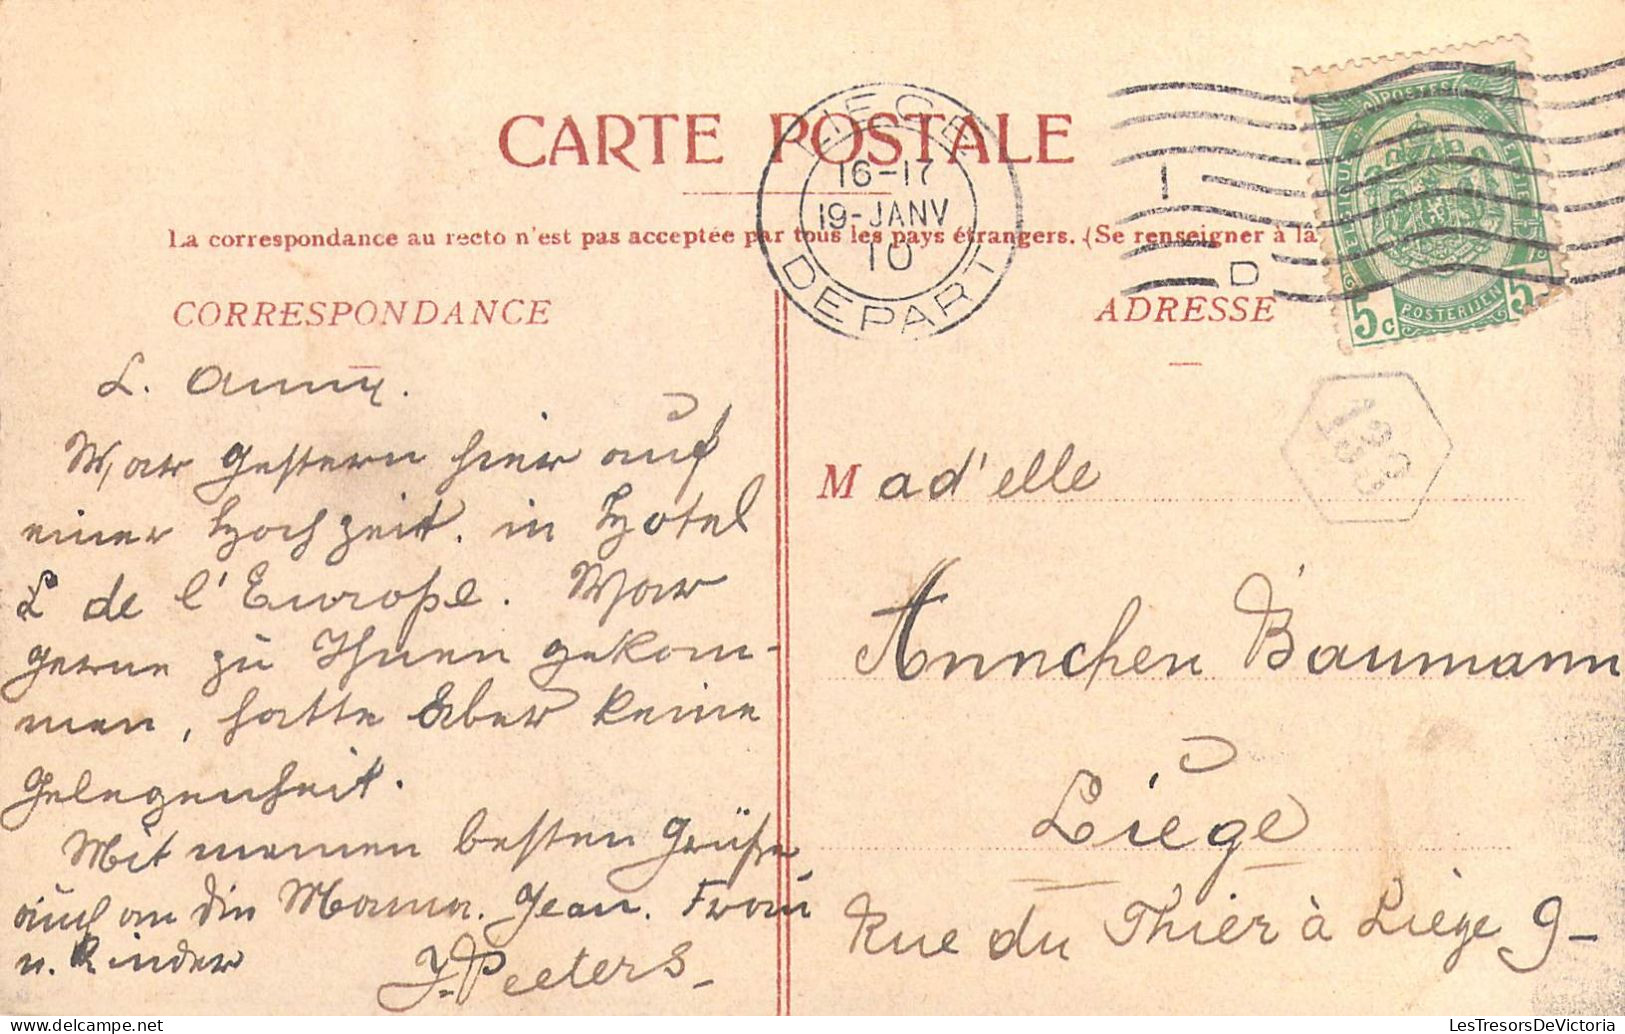 CARTE POSTALE
La correspondance au recto n'est pas acceptée par tous les pays étrangers. (Se renseigner à la
LIEGE
16-17
19-JANV
10
DEPART
1
D
POSTES
BELGIQUE
BELGIË
5c
POSTERIJEN
5
CORRESPONDANCE
L. Anny.
War gestern hier auf
einer Hochzeit. in Hotel
de l'Europe. War
gerne zu Ihnen gekom-
men, hatte aber keine
Gelegenheit.
Mit meinen besten Grüße
auch an die Mama. Jean. Frau
u. Kinder
J. Peeters-
ADRESSE
138
Mad'elle
Annchen Baumann
Liége
Rue du Thier à Liége 9-
LesTresorsDeVictoria